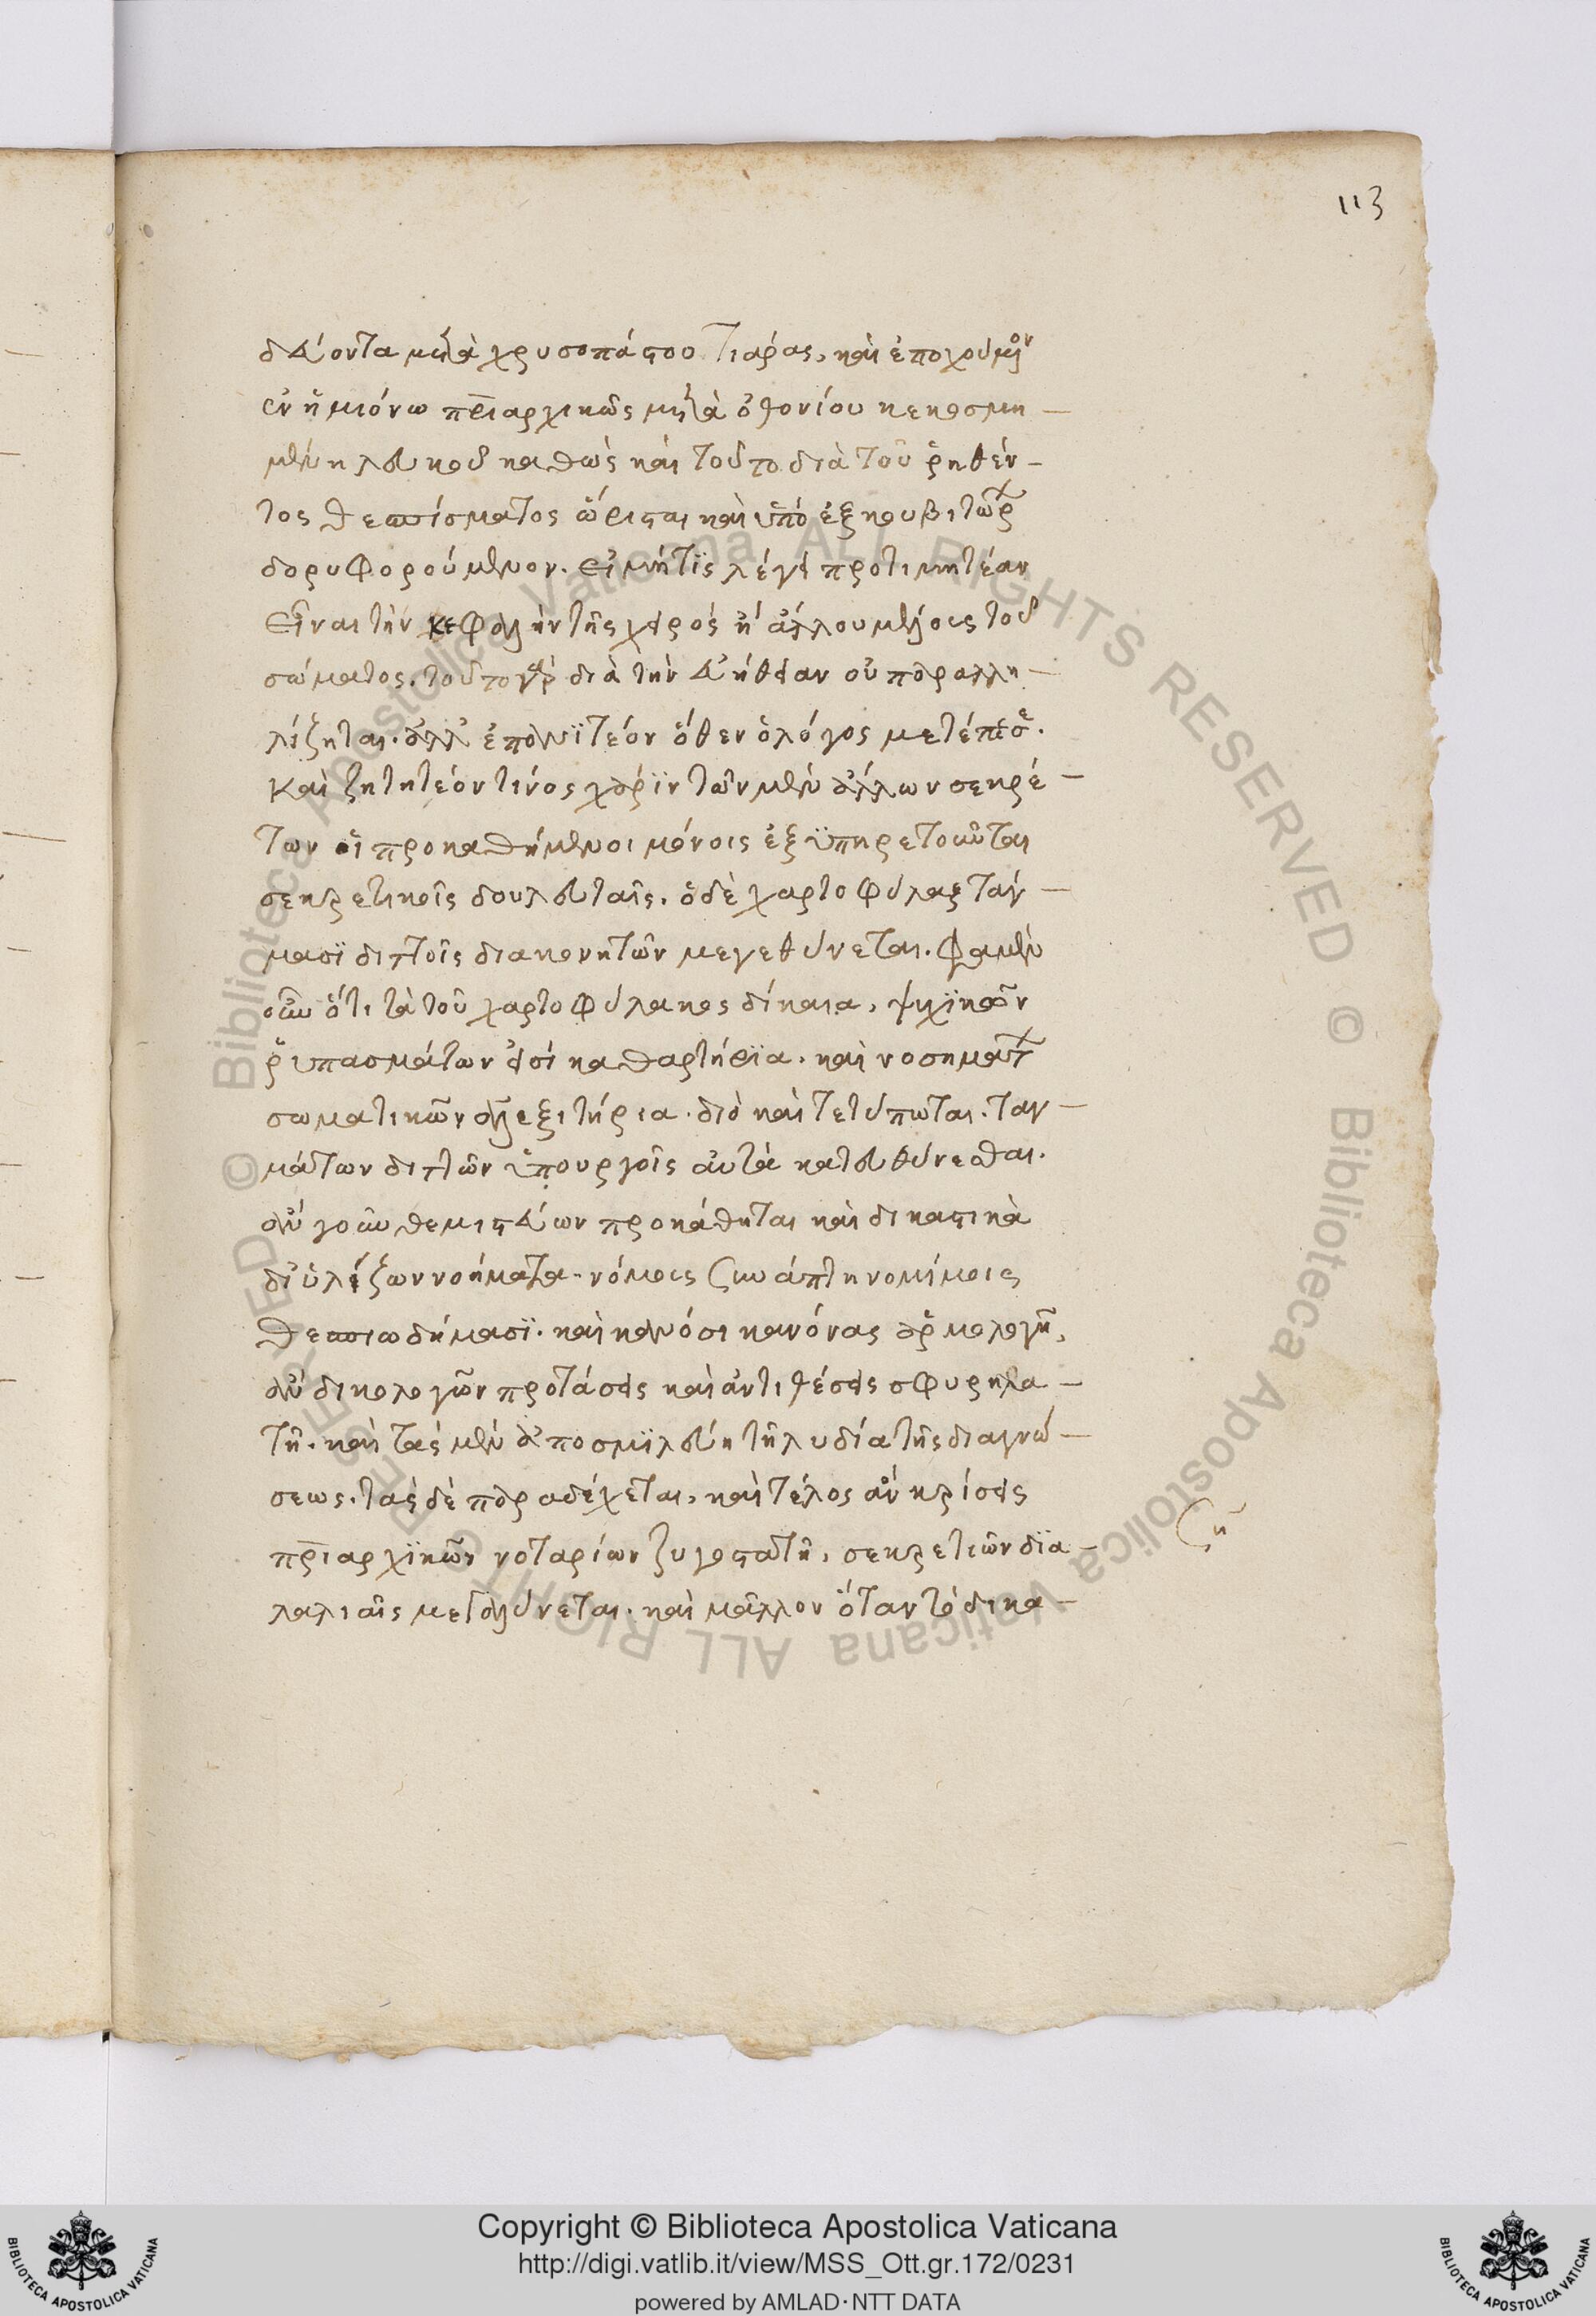 113
δεύοντα μετὰ χρυσοπάστου τιάρας, καὶ ἐποχούμενον
ἐν ἡμιόνω πριαρχικῶς μετὰ ὀθονίου κεκοσμη-
μένη λευκοῦ καθὼς καὶ τοῦτο διὰ τοῦ ῥηθέν-
τος θεσπίσματος ὥρισται καὶ ὑπὸ ἐξκουβιτώρ
δορυφορούμενον. εἰ μήτϊς λέγει προτιμητέαν
εἶναι τὴν κεφαλὴν τῆς χειρὸς ἢ ἄλλου μέλους τοῦ
σώματος. τοῦτο γὰρ διὰ τὴν εὐήθειαν οὐ παραλλη-
λίζηται. ἀλλ' ἐπανϊτέον ὅθεν ὁ λόγος μετέπεσε.
καὶ ζητητέον τίνος χάρϊν τῶν μὲν ἄλλων σεκρέ-
των οἱ προκαθήμενοι μόνοις ἐξϋπηρετοῦνται
σεκρετικοῖς δουλευταῖς. ὁ δὲ χαρτοφύλαξ τάγ-
μασϊ διττοῖς διακονητῶν μεγεθύνεται. φαμὲν
οὖν ὅτι τὰ τοῦ χαρτοφύλακος δίκαια, ψυχϊκῶν
ῥυπασμάτων εἰσὶ καθαρτήρϊα. καὶ νοσημάτ
σωματικῶν ἀλεξιτήρια. διὸ καὶ τετύπωται. ταγ-
μάτων διττῶν ὑπουργοῖς αὐτὰ κατευθύνεσθαι.
ἂν γοῦν θεμιστεύων προκάθηται καὶ δικαστικὰ
διϋλίζων νοήματα. νόμοις συνάπτη νομίμοις
θεσπιωδήμασϊ. καὶ κανόσι κανόνας ἁρμολογῆ,
ἂν δικολογῶν προτάσεις καὶ ἀντιθέσεις σφυρηλα-
τῆ. καὶ τὰς μὲν ἀποσμϊλεύη τῆ λυδία τῆς διαγνώ-
σεως. τὰς δὲ παραδέχεται, καὶ τέλος ἂν κρίσεις
πριαρχϊκῶν νοταρίων ζυγοστατῆ, σεκρετιῶν δϊα-
λαλιαῖς μεγαλύνεται. καὶ μᾶλλον ὅταν τὸ δικα-
Copyright © Biblioteca Apostolica Vaticana
http://digi.vatlib.it/view/MSS_Ott.gr.172/0231
powered by AMLAD·NTT DATA
BIBLIOTECA APOSTOLICA VATICANA
BIBLIOTECA APOSTOLICA VATICANA
© Biblioteca Apostolica Vaticana ALL RIGHTS RESERVED
© Biblioteca Apostolica Vaticana ALL RIGHTS RESERVED